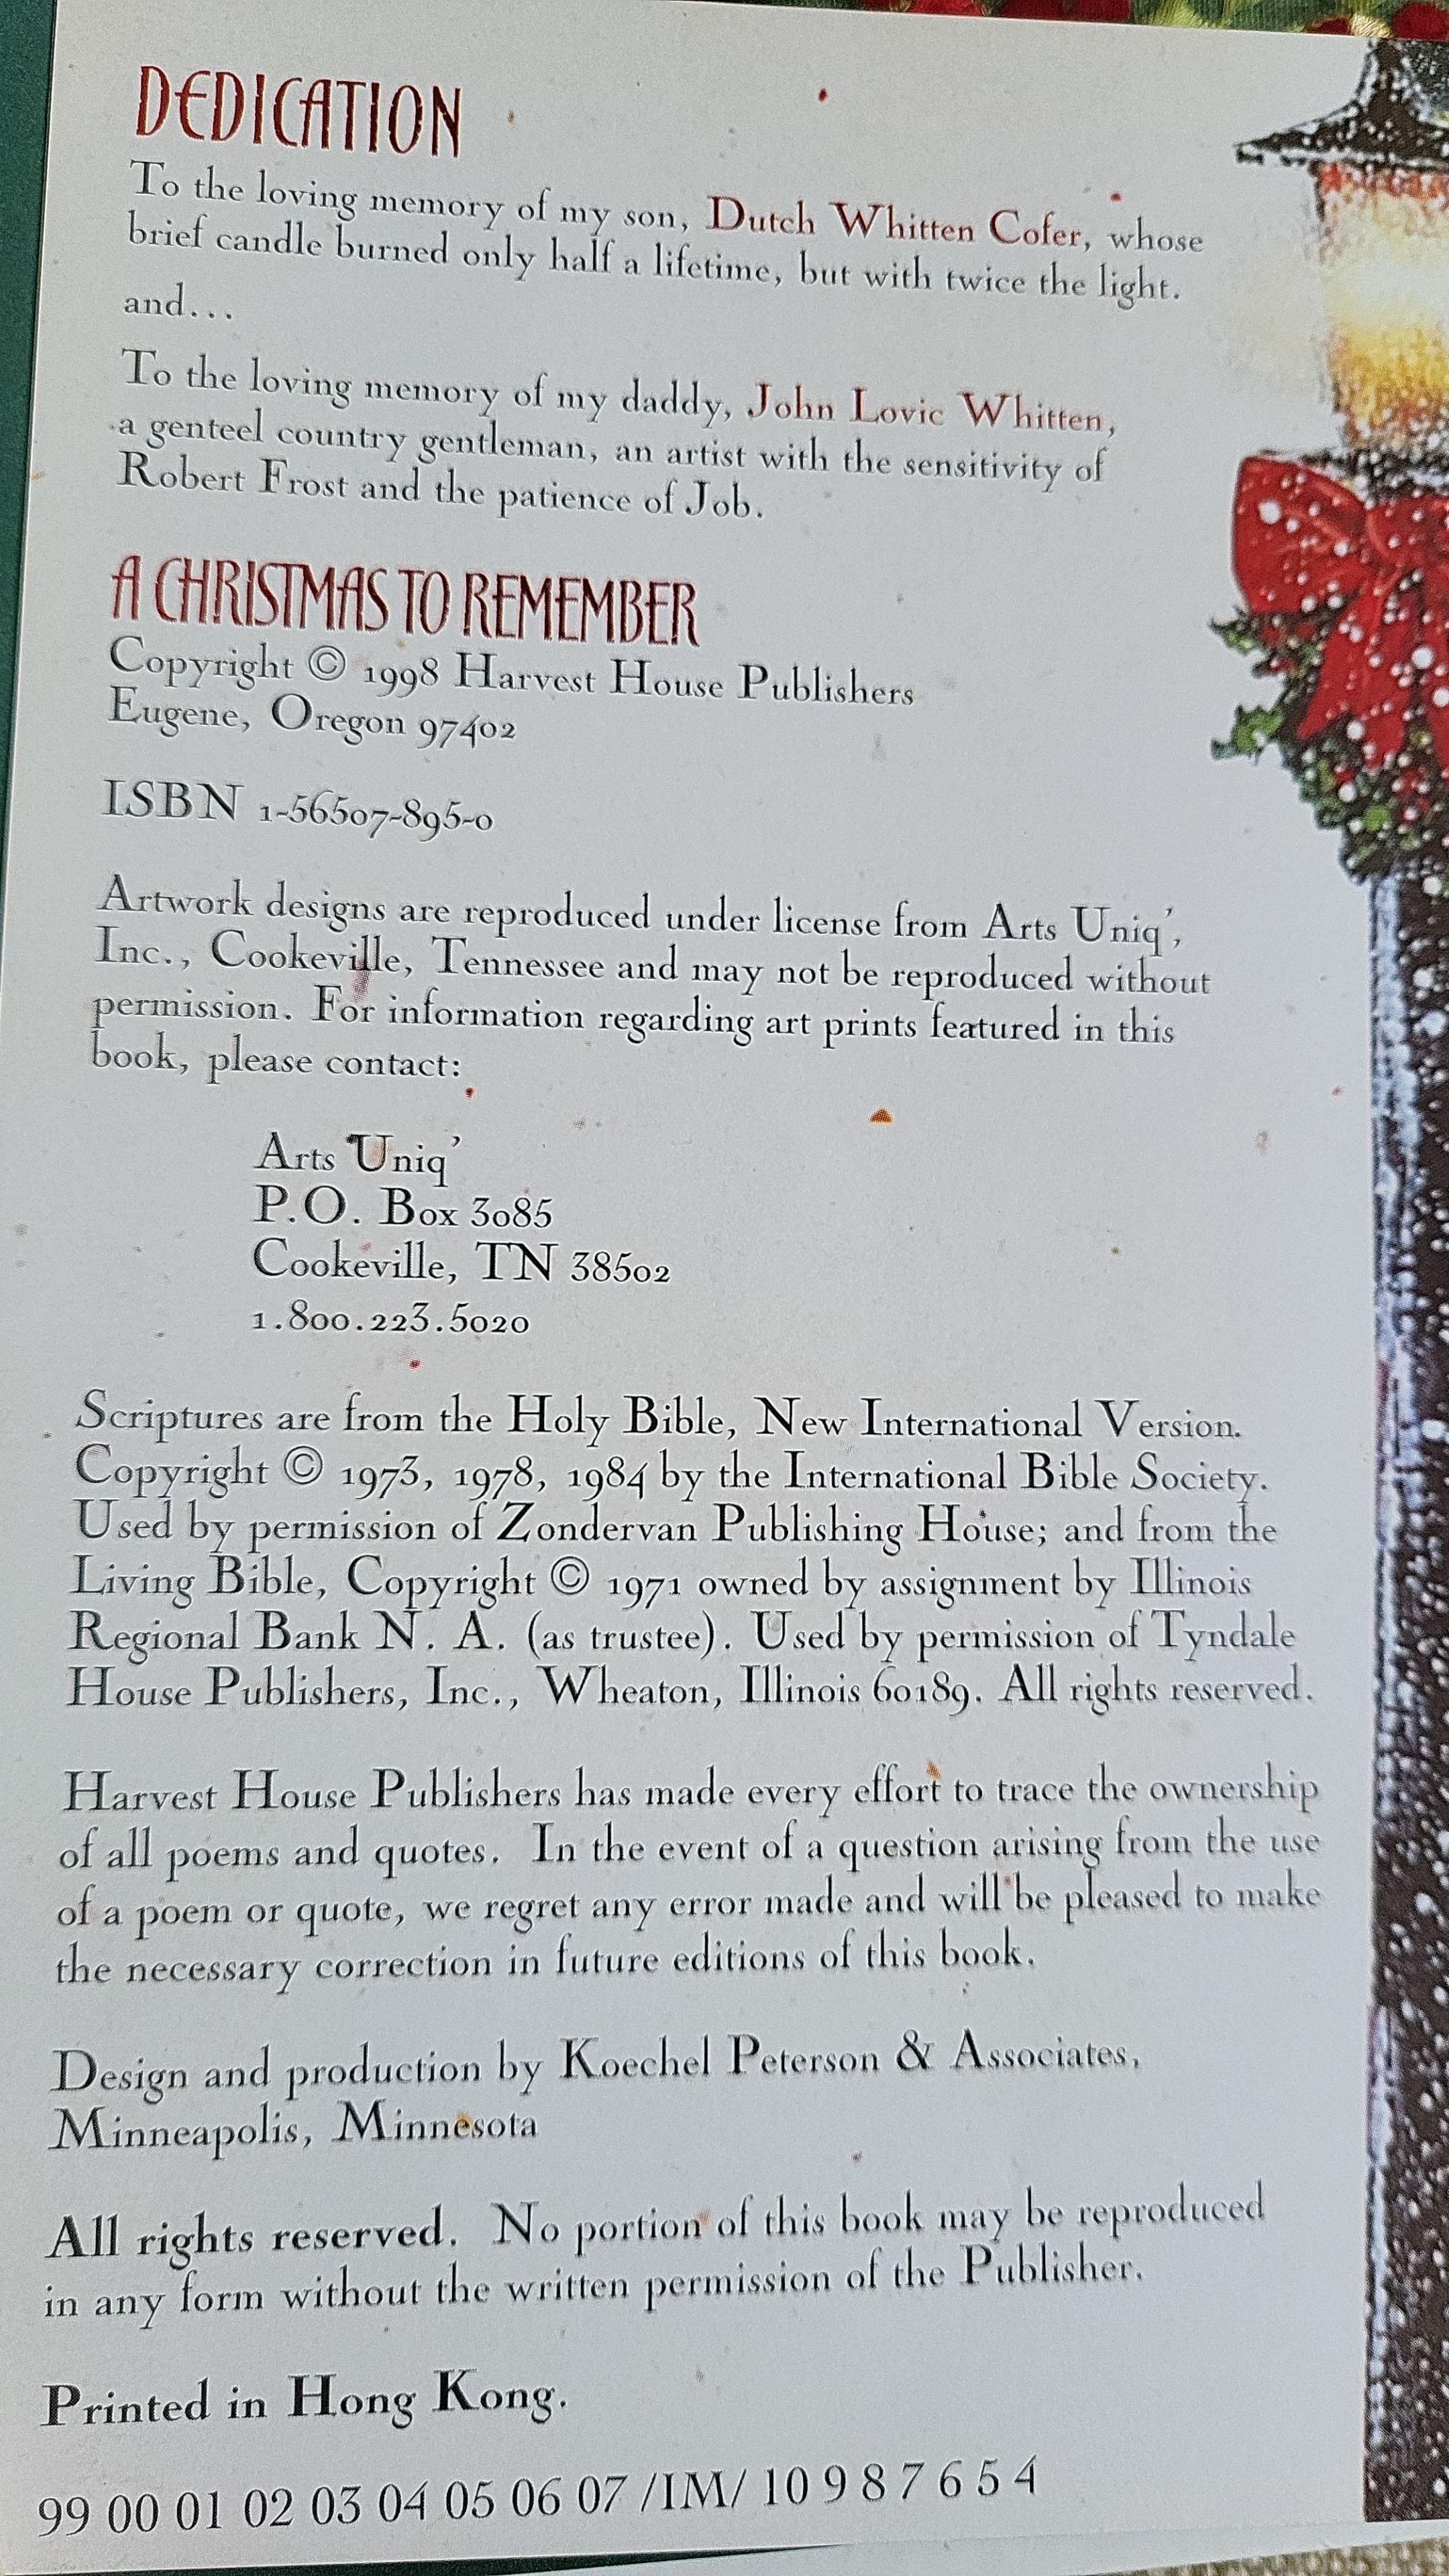 DEDICATION
To the loving memory of my son, Dutch Whitten Cofer, whose
brief candle burned only half a lifetime, but with twice the light.
and...
To the loving memory of my daddy, John Lovic Whitten,
a genteel country gentleman, an artist with the sensitivity of
Robert Frost and the patience of Job.
A CHRISTMAS TO REMEMBER
Copyright © 1998 Harvest House Publishers
Eugene, Oregon 97402
ISBN 1-56507-895-0
Artwork designs are reproduced under license from Arts Uniq',
Inc., Cookeville, Tennessee and may not be reproduced without
permission. For information regarding art prints featured in this
book, please contact:
Arts Uniq'
P.O. Box 3085
Cookeville, TN 38502
1.800.223.5020
Scriptures are from the Holy Bible, New International Version.
Copyright © 1973, 1978, 1984 by the International Bible Society.
Used by permission of Zondervan Publishing House; and from the
Living Bible, Copyright © 1971 owned by assignment by Illinois
Regional Bank N. A. (as trustee). Used by permission of Tyndale
House Publishers, Inc., Wheaton, Illinois 60189. All rights reserved.
Harvest House Publishers has made every effort to trace the ownership
of all poems and quotes. In the event of a question arising from the use
of a poem or quote, we regret any error made and will be pleased to make
the necessary correction in future editions of this book.
Design and production by Koechel Peterson & Associates,
Minneapolis, Minnesota
All rights reserved. No portion of this book may be reproduced
in any form without the written permission of the Publisher.
Printed in Hong Kong.
99 00 01 02 03 04 05 06 07 /IM/ 10 9 8 7 6 5 4